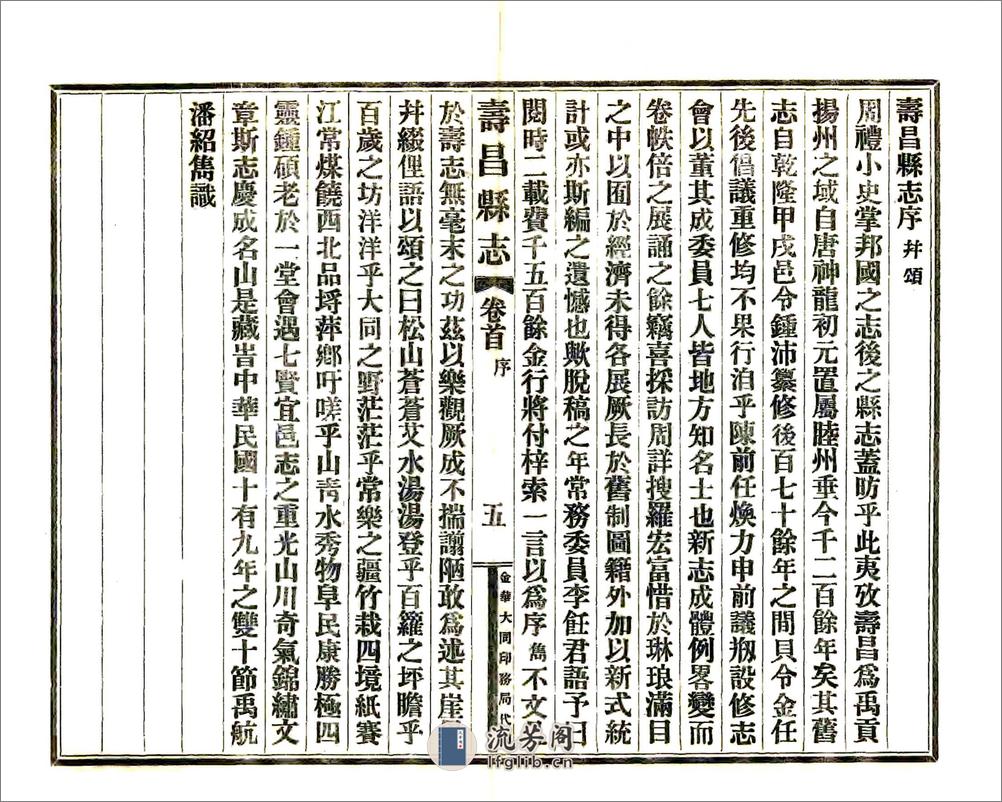 壽昌縣志序 幷頌
周禮小史掌邦國之志後之縣志蓋昉乎此夷攷壽昌爲禹貢
揚州之域自唐神龍初元置屬睦州垂今千二百餘年矣其舊
志自乾隆甲戌邑令鍾沛纂修後百七十餘年之間貝令金任
先後倡議重修均不果行洎乎陳前任煥力申前議剏設修志
會以董其成委員七人皆地方知名士也新志成體例畧變而
卷帙倍之展誦之餘竊喜採訪周詳搜羅宏富惜於琳琅滿目
之中以囿於經濟未得各展厥長於舊制圖籍外加以新式統
計或亦斯編之遺憾也歟脫稿之年常務委員李飪君語予曰
閱時二載費千五百餘金行將付梓索一言以爲序 雋 不文
壽昌縣志 卷首 序 五 金華大同印務局代
於壽志無毫末之功茲以樂觀厥成不揣譾陋敢爲述其崖
幷綴俚語以頌之曰松山蒼蒼艾水湯湯登乎百籮之坪瞻乎
百歲之坊洋洋乎大同之野茫茫乎常樂之疆竹栽四境紙賽
江常煤饒西北品埒萍鄉吁嗟乎山靑水秀物阜民康勝極四
靈鍾碩老於一堂會遇七賢宜邑志之重光山川奇氣錦繡文
章斯志慶成名山是藏旹中華民國十有九年之雙十節禹航
潘紹雋識
流芳阁
lfglib.cn